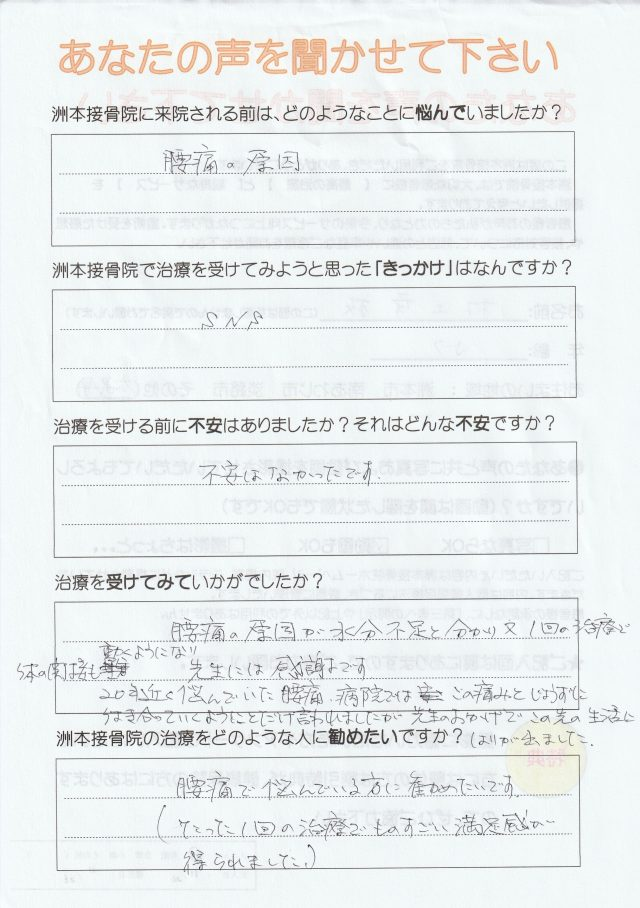 あなたの声を聞かせて下さい
洲本接骨院に来院される前は、どのようなことに悩んでいましたか?
腰痛の原因
洲本接骨院で治療を受けてみようと思った「きっかけ」はなんですか?
SNS
治療を受ける前に不安はありましたか?それはどんな不安ですか?
不安はなかったです.
治療を受けてみていかがでしたか?
腰痛の原因が水分不足と分かり又1回の治療で
体の関接も
動くようになり
先生には感謝です
20年近く悩んでいた腰痛、病院では この痛みとじょうずに
付き合っていくようにとだけ言われましたが先生のおかげでこの先の生活に
はりが出ました.
洲本接骨院の治療をどのような人に勧めたいですか?
腰痛で悩んでいる方に進めたいです
(たった1回の治療でものすごい満足感が
得られました.)
特典